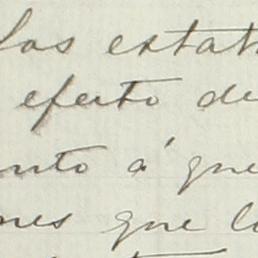 los estat
efecto de
nto á que
nes que lo